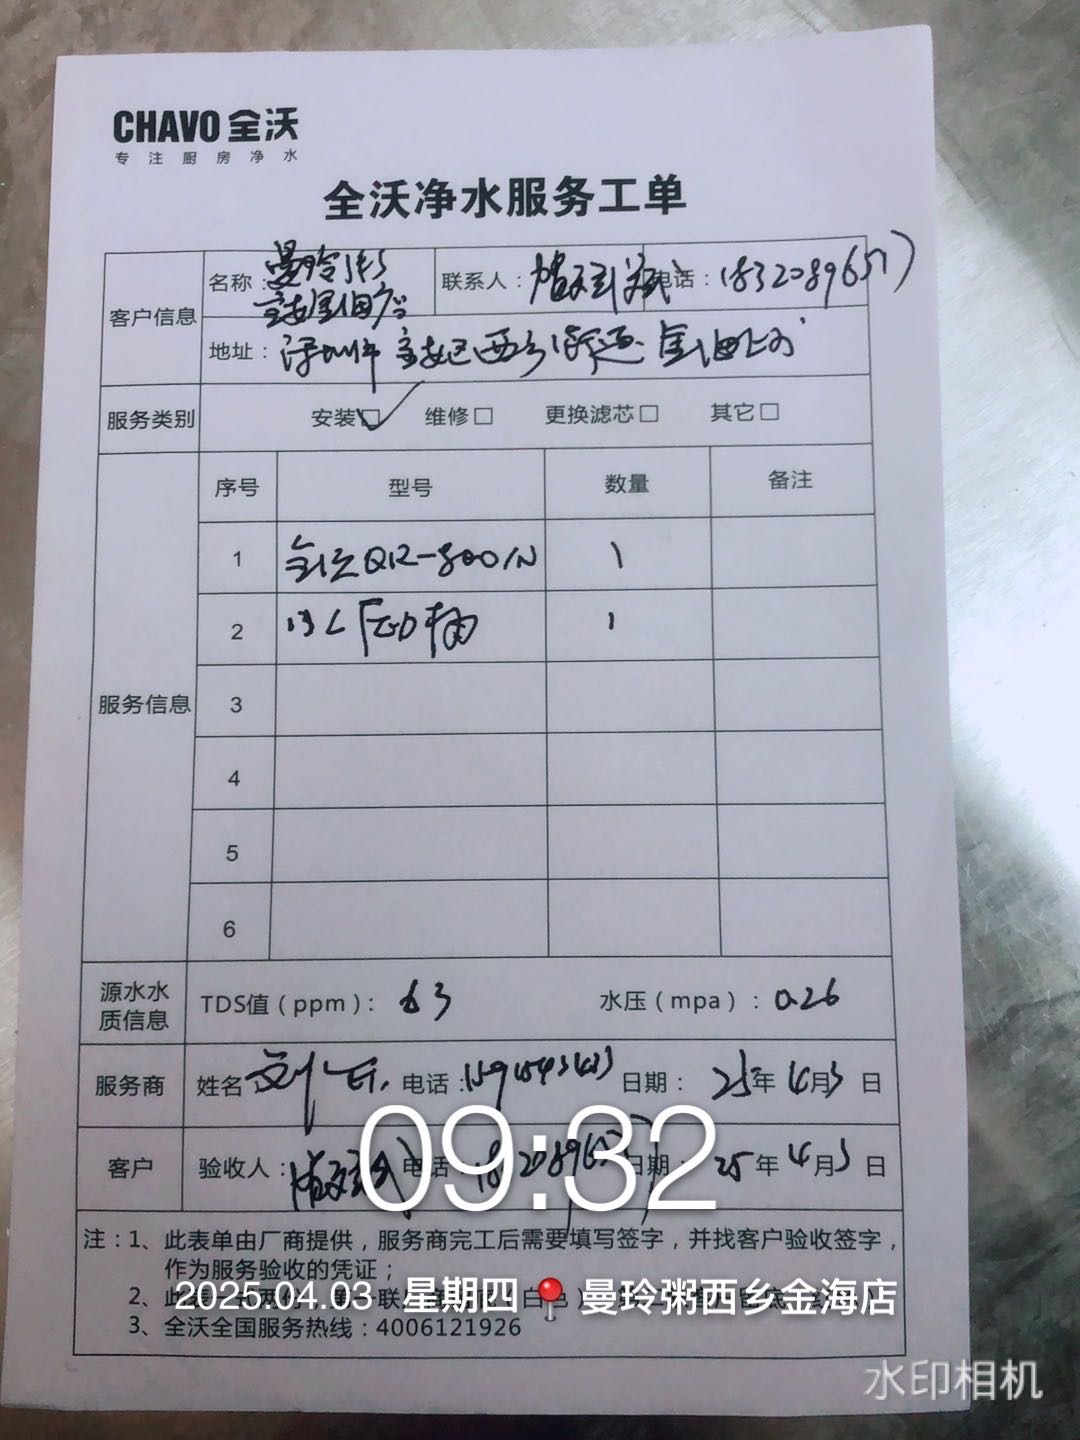 CHAVO 全沃
专注厨房净水
全沃净水服务工单
客户信息
名称：曼玲粥
宝安金海店
联系人：
电话：
地址：深圳市宝安区西乡街道金海
服务类别
安装☑ 维修□ 更换滤芯□ 其它□
服务信息
序号 型号 数量 备注
1 全沃QR-800/N 1
2 13L压力桶 1
3
4
5
6
源水水质信息
TDS值（ppm）：63 水压（mpa）：0.26
服务商 姓名：刘 电话： 日期：25年4月3日
客户 验收人： 电话： 日期：25年4月3日
注：1、此表单由厂商提供，服务商完工后需要填写签字，并找客户验收签字，
作为服务验收的凭证；
2、此表
3、全沃全国服务热线：4006121926
09:32
2025.04.03 星期四 曼玲粥西乡金海店
水印相机